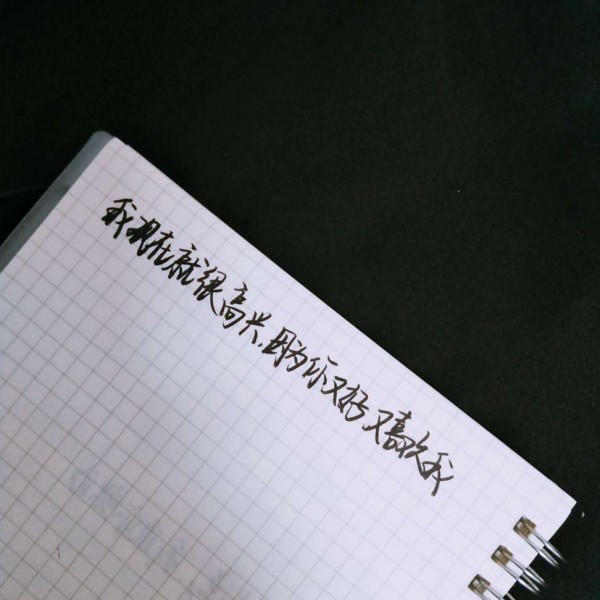 我现在就很高兴,因为你又好又喜欢我